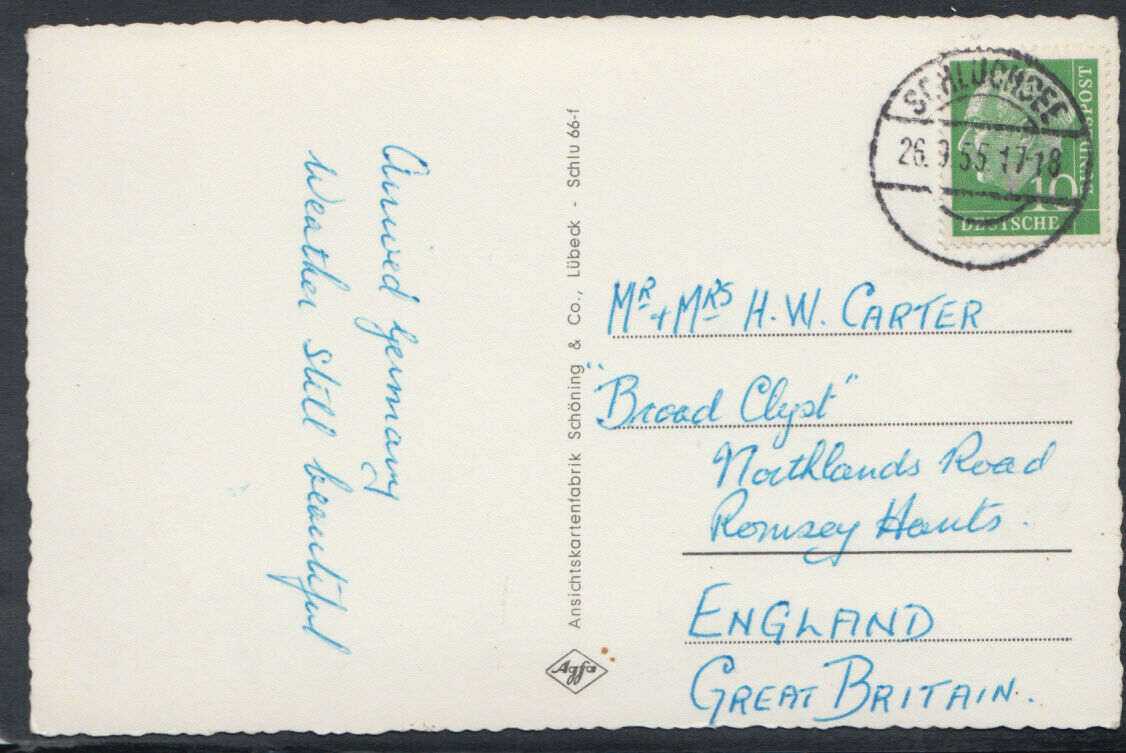 Arrived Germany
Weather still beautiful
Ansichtskartenfabrik Schöning & Co., Lübeck - Schlu 66-f
Agfa
SCHLUCHSEE
26.9.55.17-18
10
DEUTSCHE
BUNDESPOST
Mr + Mrs H. W. CARTER
"Broad Clyst"
Northlands Road
Romsey Hants.
ENGLAND
GREAT BRITAIN.